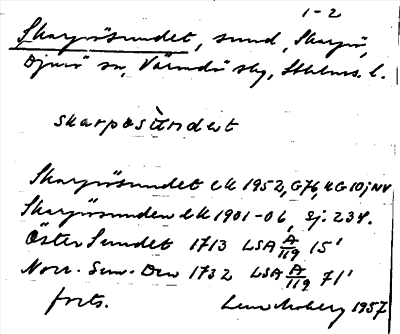 1-2
Skarpösundet, sund, Skarpö,
Djurö sn, Värmdö skg, Sthlms. l.
skarpösùndeʈ
Skarpösundet ek 1952, G76, KG 10j NV
Skarpösunden ek 1901-06, sj. 238.
Öster Sundet 1713 LSA A/119 15'
Norr. Sun. Den 1732 LSA A/119 71'
forts. Lena Moberg 1957